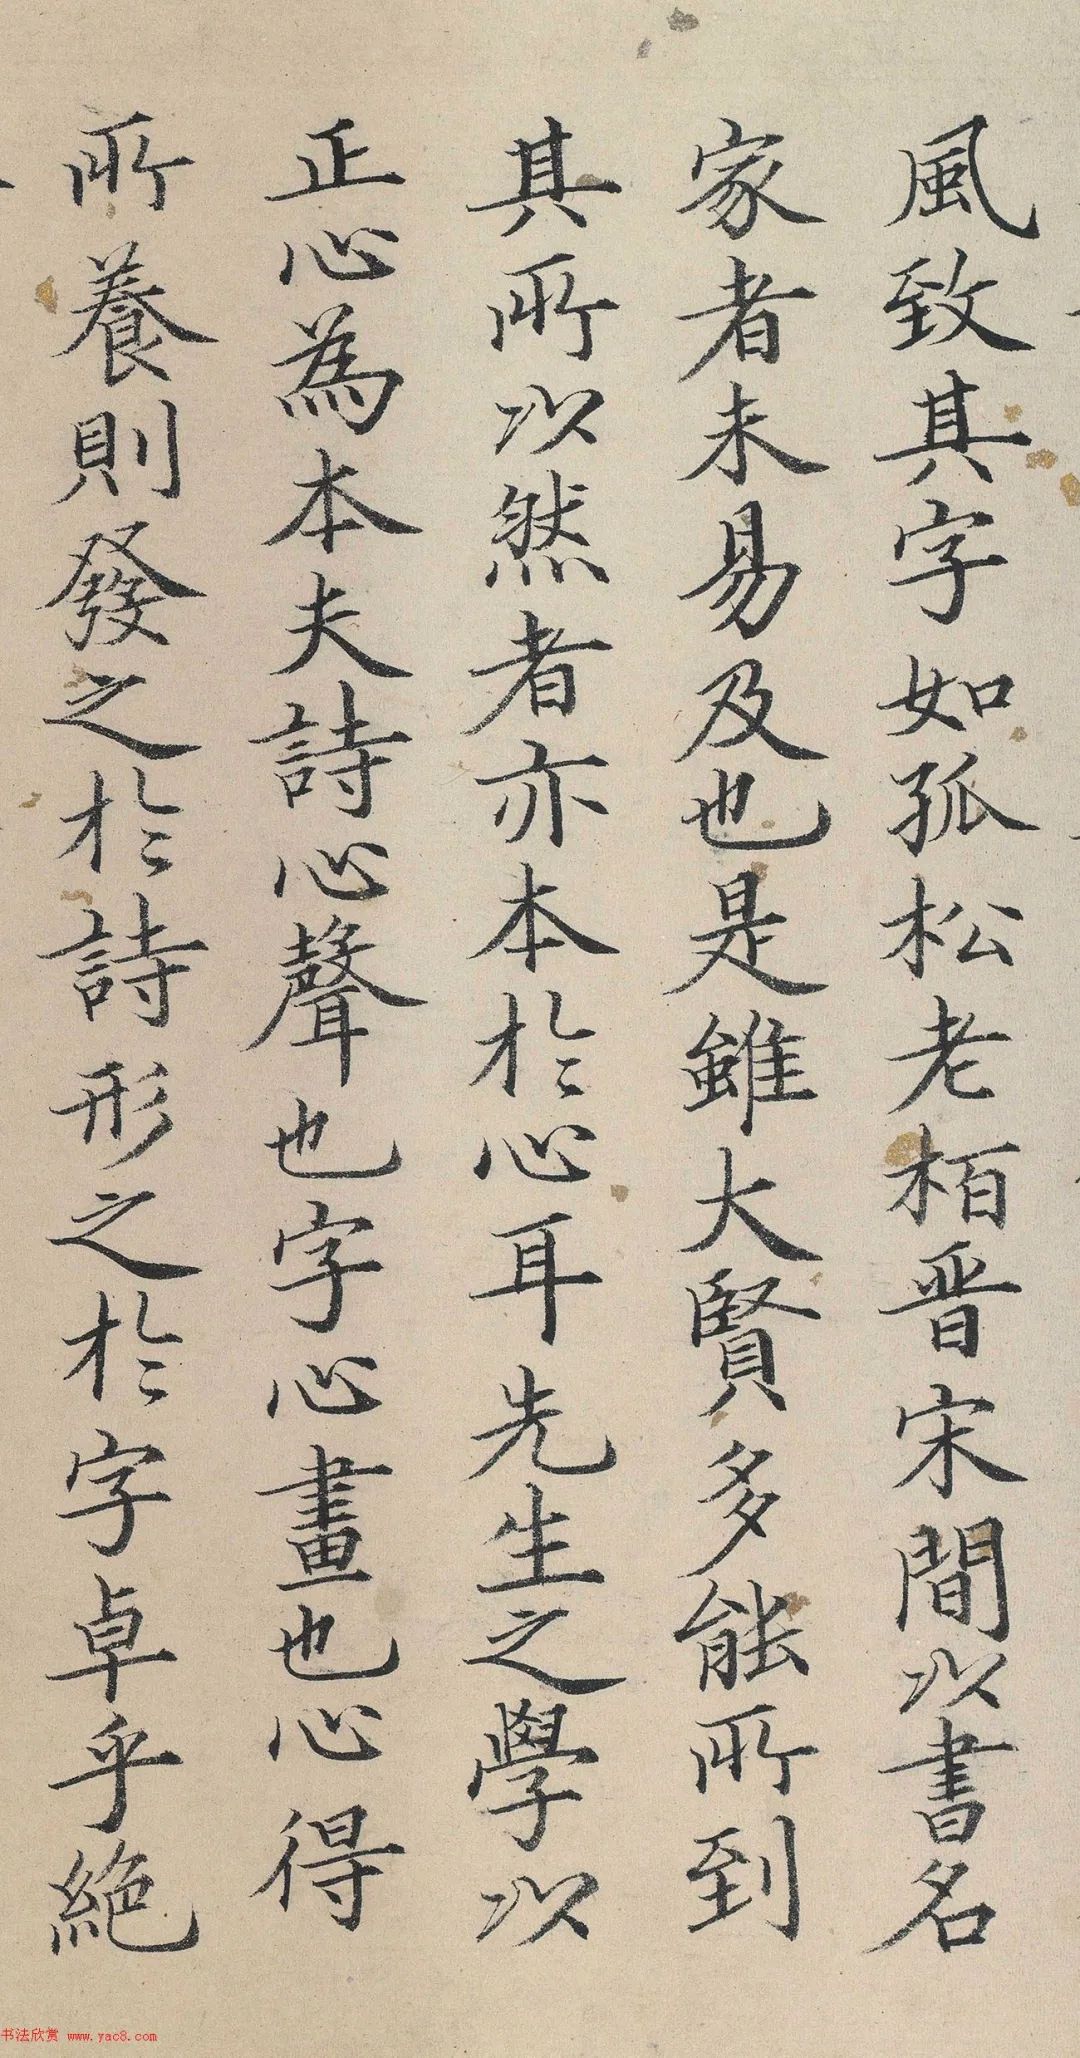 風致其字如孤松老栢晉宋間以書名
家者未易及也是雖大賢多能所到
其所以然者亦本於心耳先生之學以
正心為本夫詩心聲也字心畫也心得
所養則發之於詩形之於字卓乎絕
书法欣赏 www.yac8.com